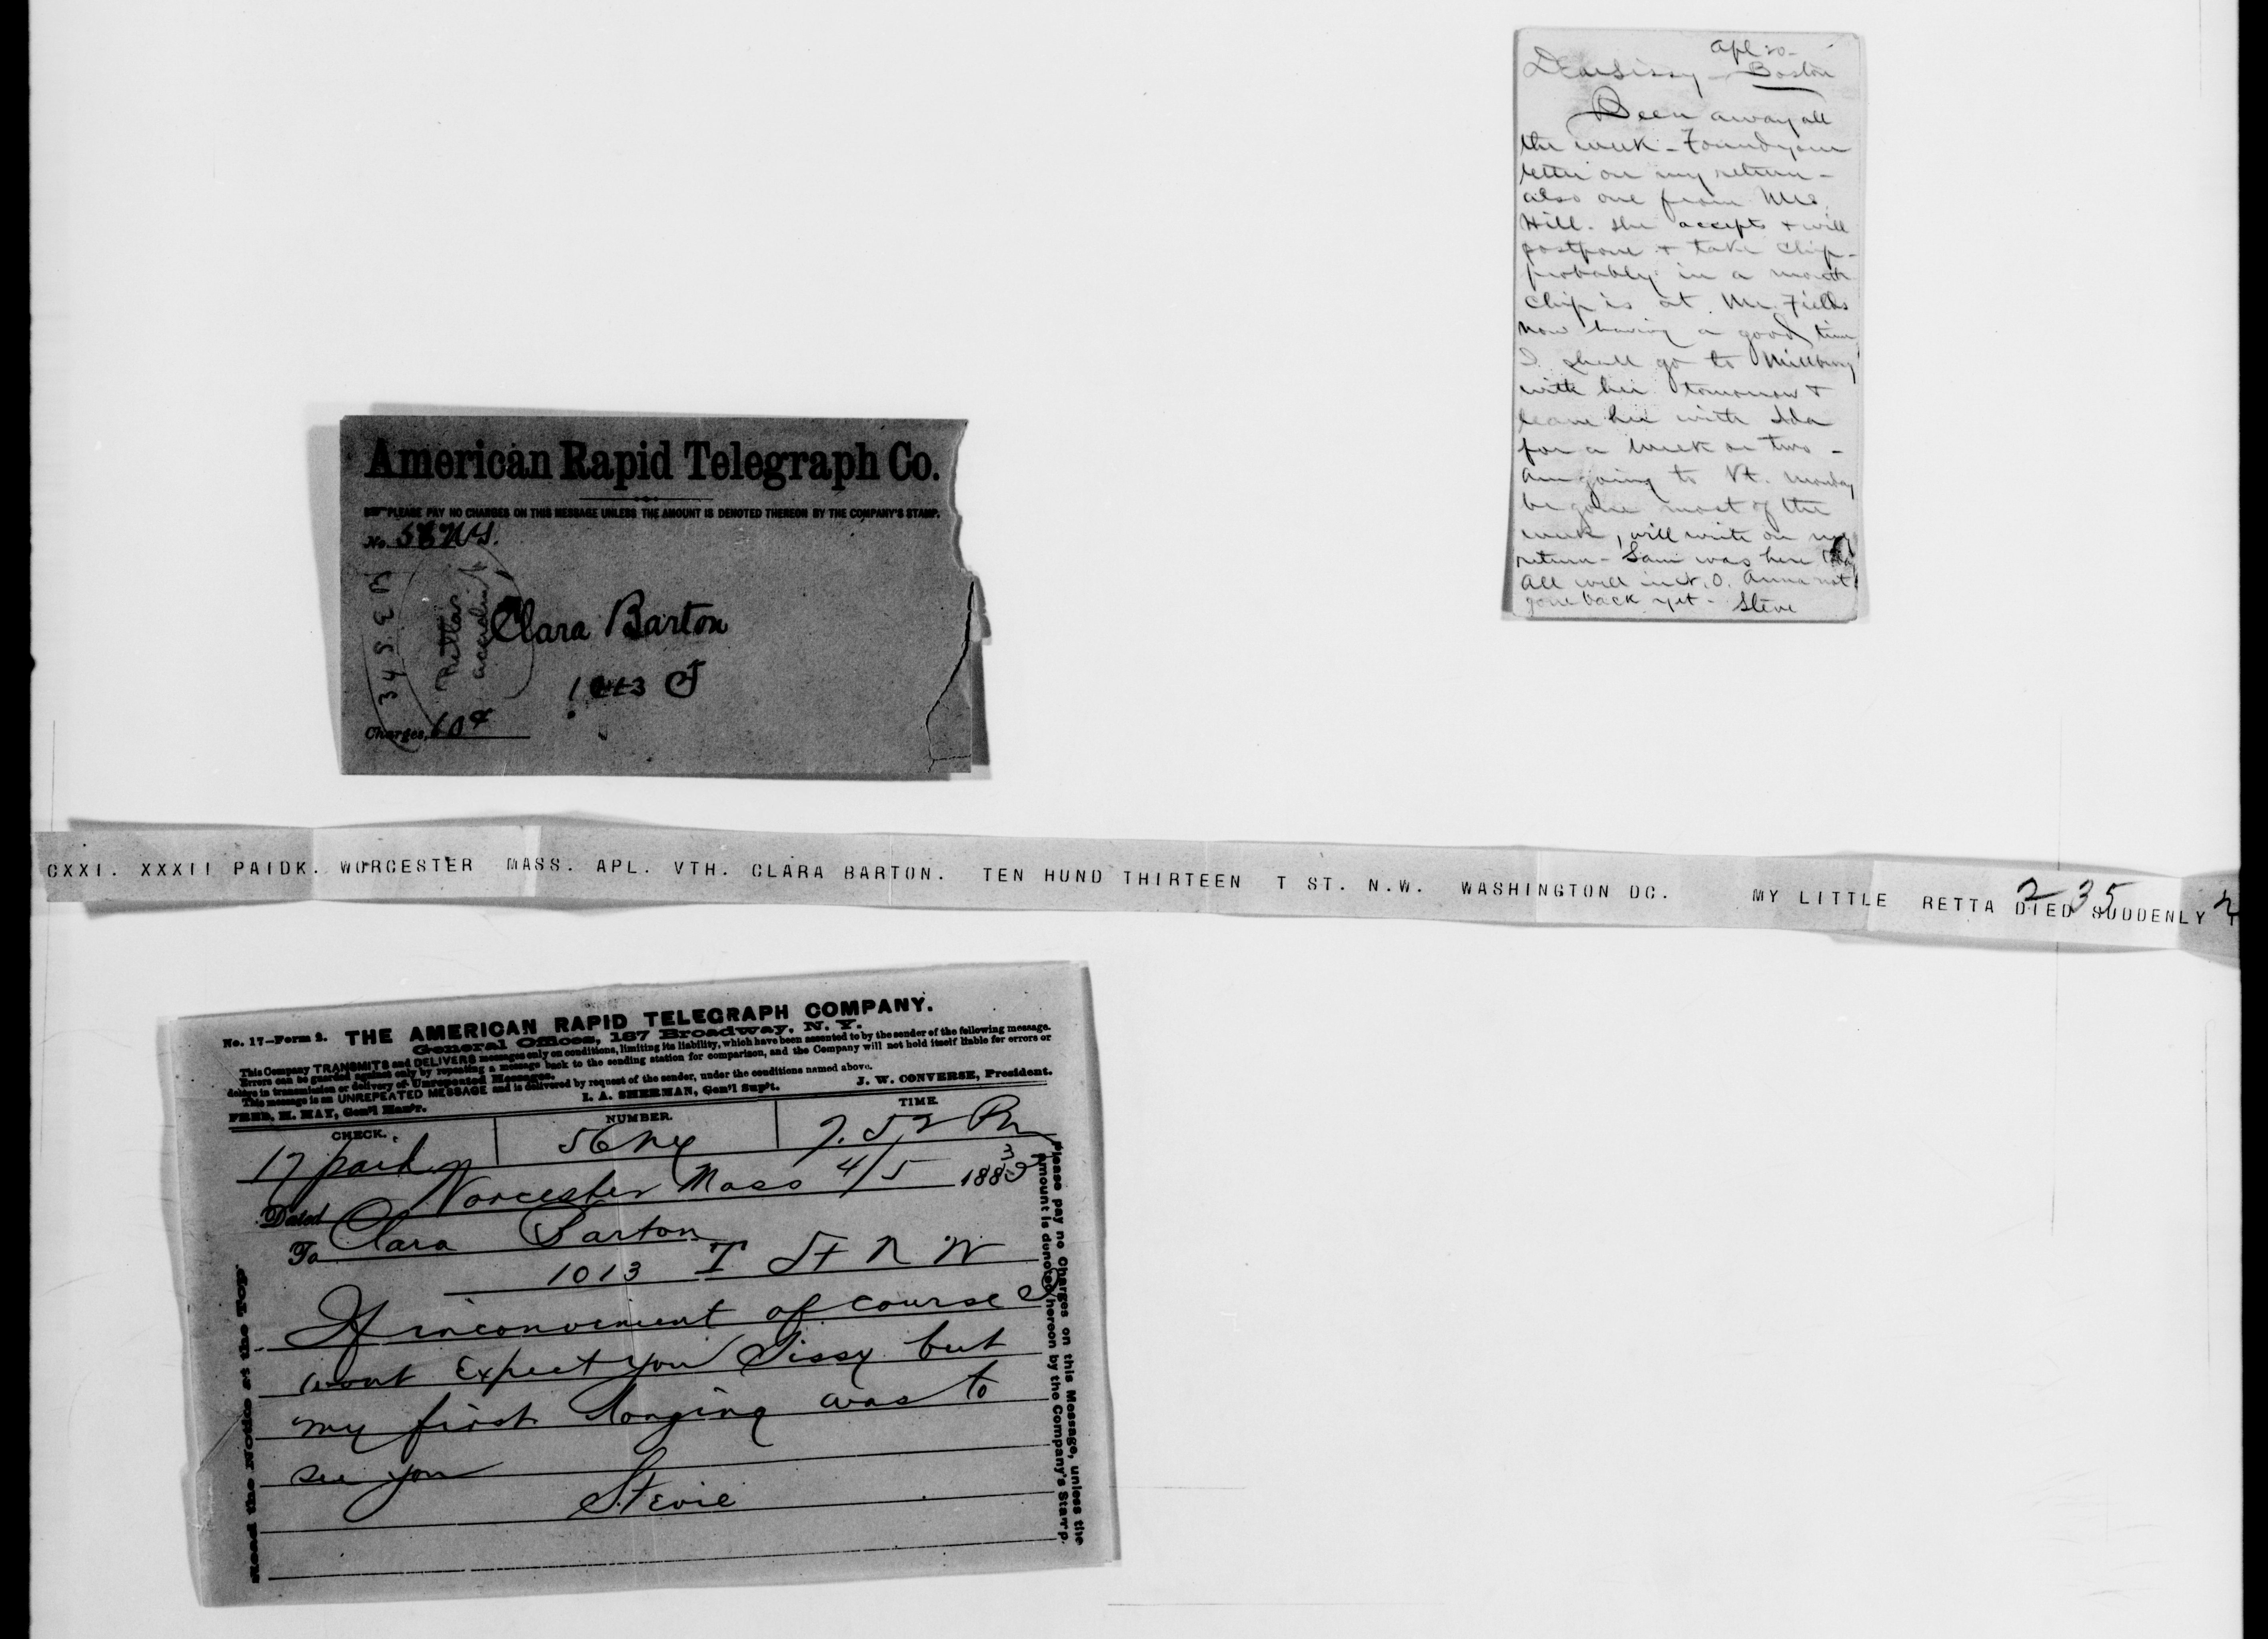 American Rapid Telegraph Co.
PLEASE PAY NO CHARGES ON THIS MESSAGE UNLESS THE AMOUNT IS DENOTED THEREON BY THE COMPANY'S STAMP.
No.
Clara Barton
1013 T
Charges, 60¢
Rettas
Apl 20-
Dear Sissy - Boston
Been away all
the week - Found your
letter on my return -
also one from Mrs.
Hill. She accepts & will
postpone & take Chip -
probably in a month
Chip is at Mr. Fields
now having a good time
I shall go to Millbury
with her tomorrow &
leave her with Ida
for a week or two -
Am going to Vt. Monday
be gone most of the
week, will write on my
return - Sam was here
All well in N. O. Anna not
gone back yet - Steve
CXXI. XXXII PAIDK. WORCESTER MASS. APL. VTH. CLARA BARTON. TEN HUND THIRTEEN T ST. N.W. WASHINGTON DC. MY LITTLE RETTA DIED SUDDENLY
235
No. 17-Form 2. THE AMERICAN RAPID TELEGRAPH COMPANY.
General Offices, 187 Broadway, N. Y.
This Company TRANSMITS and DELIVERS messages only on conditions, limiting its liability, which have been assented to by the sender of the following message.
Errors can be guarded against only by repeating a message back to the sending station for comparison, and the Company will not hold itself liable for errors or
delays in transmission or delivery of Unrepeated Messages.
This message is an UNREPEATED MESSAGE and is delivered by request of the sender, under the conditions named above.
FRED. H. MAY, Gen'l Man'r. I. A. SHERMAN, Gen'l Sup't. J. W. CONVERSE, President.
CHECK. NUMBER. TIME.
17 paid 56 7.52 Pm
Dated Worcester Mass 4/5 1883
To Clara Barton
1013 T St N W
If inconvenient of course I
wont Expect you Sissy but
my first longing was to
see you
Stevie
Read the Notice at the Top.
Please pay no Charges on this Message, unless the
amount is denoted hereon by the Company's Stamp.